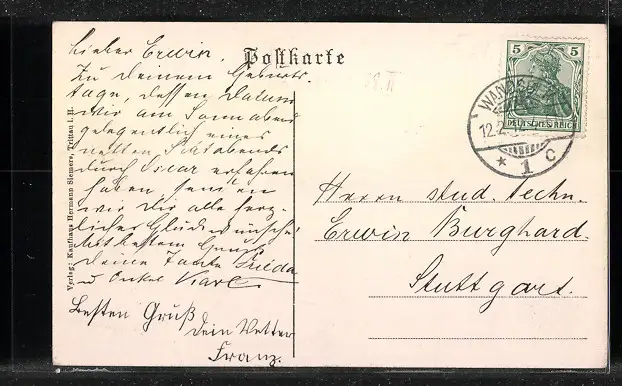 Postkarte
Lieber Erwin,
Zu Deinem Geburts-
tage, dessen Datum
wir am Sonnabend
gelegentlich eines
netten Skatabends
durch Oscar erfahren
haben, senden
wir Dir alle herz-
lichen Glückwünsche
Mit bestem Gruß
Deine Tante Frieda
u Onkel Karl
Besten Gruß
Dein Vetter
Franz.
Verlag: Kaufhaus Hermann Siemers, Trittau i. H.
5 5
DEUTSCHES REICH
WANDSB
12.2.
* 1 c
Herrn stud. techn.
Erwin Burghard.
Stuttgart.